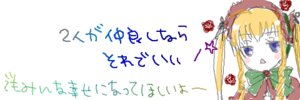 2人が仲良しなら
それでいい
ぽみんな幸せになってほしいよー